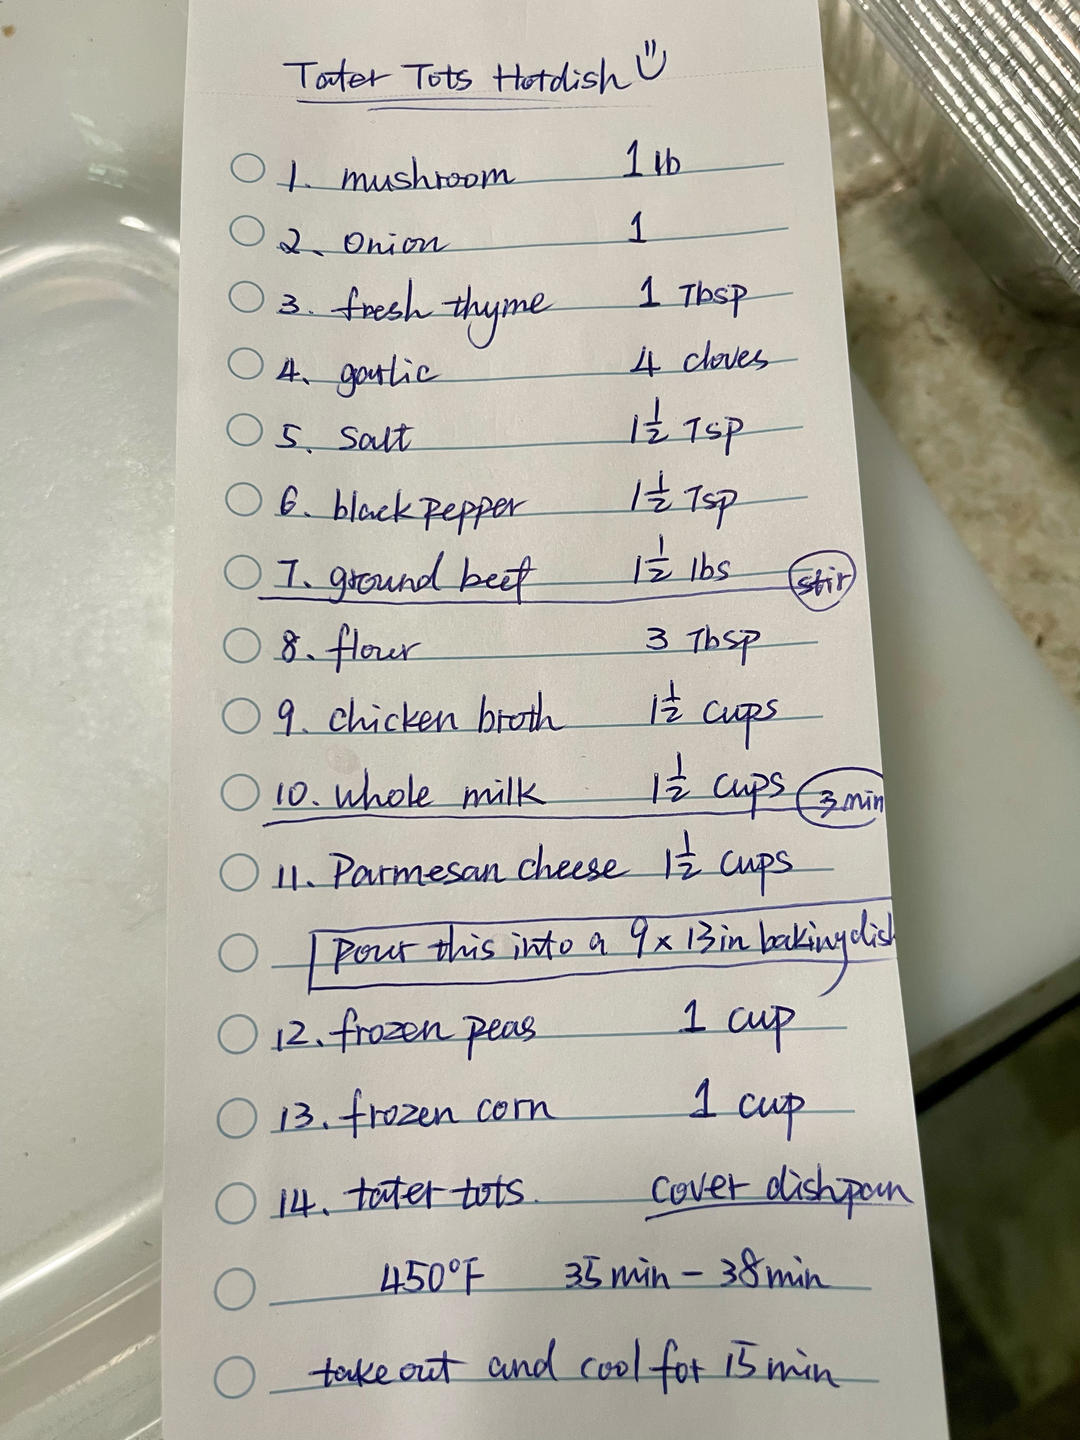 Tater Tots Hotdish
1. mushroom 1 lb
2. Onion 1
3. fresh thyme 1 Tbsp
4. garlic 4 cloves
5. Salt 1½ Tsp
6. black pepper 1½ Tsp
7. ground beef 1½ lbs stir
8. flour 3 Tbsp
9. chicken broth 1½ cups
10. whole milk 1½ cups 3 min
11. Parmesan cheese 1½ cups
Pour this into a 9 x 13 in baking dish
12. frozen peas 1 cup
13. frozen corn 1 cup
14. tater tots. cover dishpan
450°F 35 min - 38 min
take out and cool for 15 min